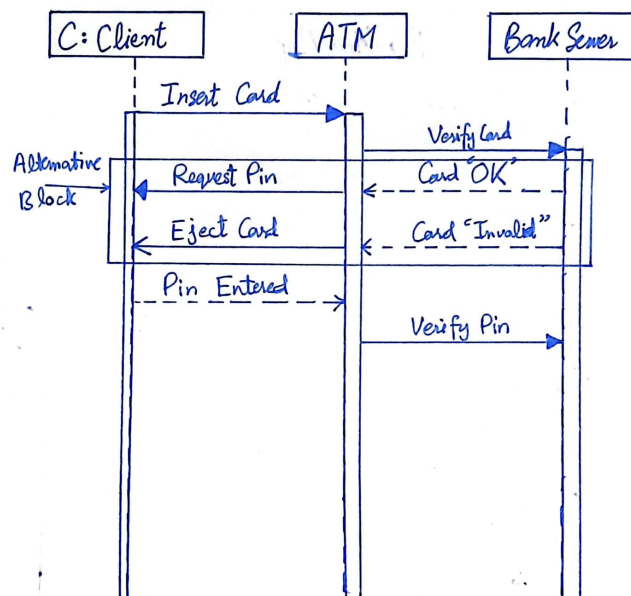 C: Client
ATM
Bank Server
Insert Card
Verify Card
Alternative
Block
Request Pin
Card "OK"
Eject Card
Card "Invalid"
Pin Entered
Verify Pin